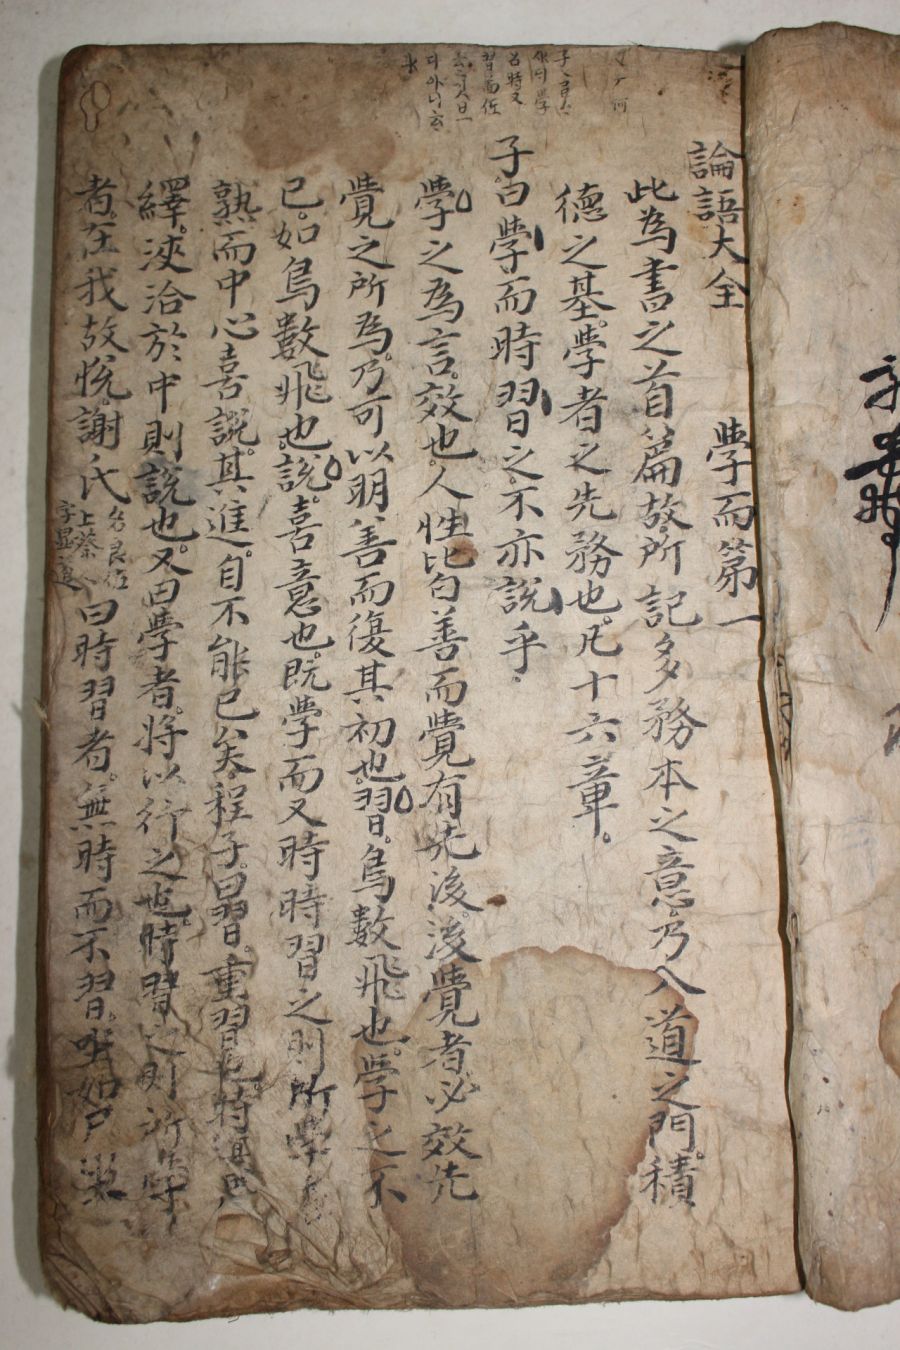 論語大全　學而第一
此為書之首篇故所記多務本之意乃入道之門積
德之基學者之先務也凡十六章
子曰學而時習之不亦說乎
學之為言效也人性皆善而覺有先後後覺者必效先
覺之所為乃可以明善而復其初也習鳥數飛也學之不
已如鳥數飛也說喜意也既學而又時時習之則所學者
熟而中心喜說其進自不能已矣程子曰習重習也時復思
繹浹洽於中則說也又曰學者將以行之也時習之則所學
者在我故悅謝氏名良佐上蔡人字顯道曰時習者無時而不習坐如尸